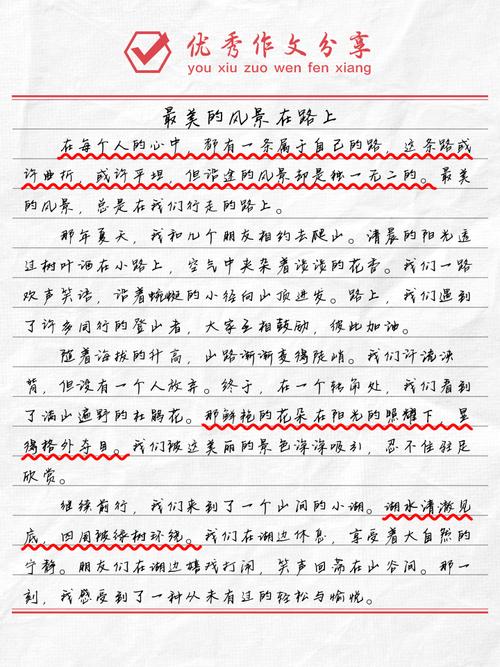 优秀作文分享
you xiu zuo wen fen xiang
最美的风景在路上
在每个人的心中，都有一条属于自己的路，这条路或
许曲折，或许平坦，但沿途的风景却是独一无二的。最美
的风景，总是在我们行走的路上。
那年夏天，我和几个朋友相约去爬山。清晨的阳光透
过树叶洒在小路上，空气中夹杂着淡淡的花香。我们一路
欢声笑语，沿着蜿蜒的小径向山顶进发。路上，我们遇到
了许多同行的登山者，大家互相鼓励，彼此加油。
随着海拔的升高，山路渐渐变得陡峭。我们汗流浃
背，但没有一个人放弃。终于，在一个转角处，我们看到
了满山遍野的杜鹃花。那鲜艳的花朵在阳光的照耀下，显
得格外夺目。我们被这美丽的景色深深吸引，忍不住驻足
欣赏。
继续前行，我们来到了一个山间的小湖。湖水清澈见
底，四周被绿树环绕。我们在湖边休息，享受着大自然的
宁静。朋友们在湖边嬉戏打闹，笑声回荡在山谷间。那一
刻，我感受到了一种从未有过的轻松与愉悦。